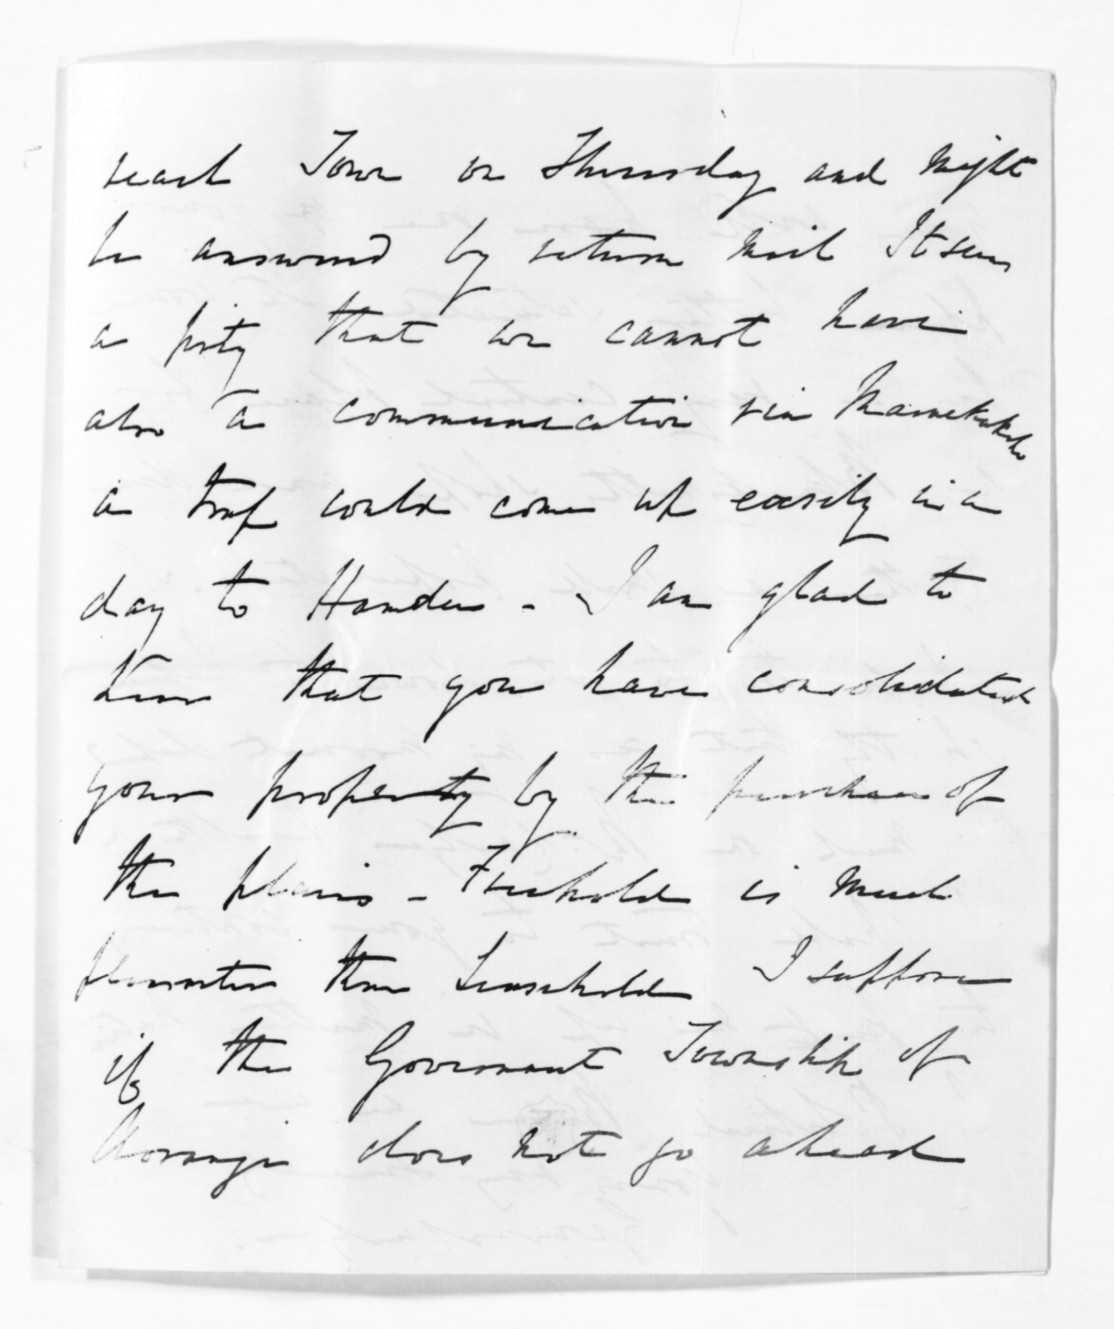 reach Town on Thursday and might
be answered by return mail It seems
a pity that we cannot have
also a communication via Manukau
a trap could come up easily in a
day to Hamden - I am glad to
hear that you have consolidated
your property by the purchase of
the plains - Freehold is much
pleasanter than Leasehold I suppose
if the Government Township of
Aorangi does not go ahead